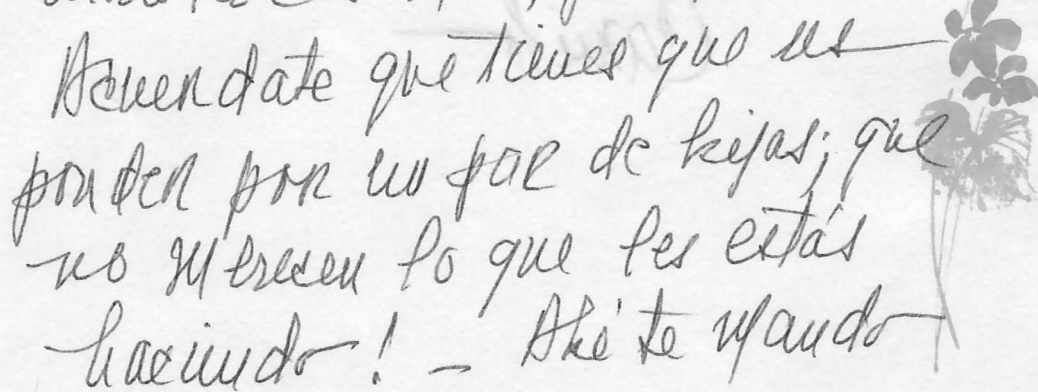 Acuerdate que tienes que res-
ponder por un par de hijas; que
no merecen lo que les estás
haciendo! - Ahí te mando